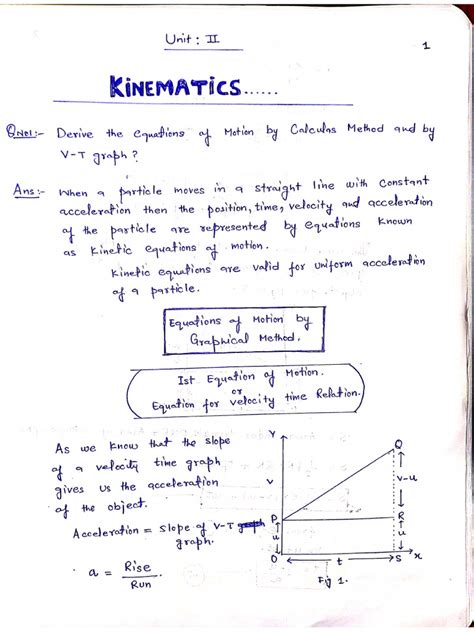 Unit : II
1
KiNEMATiCS......
QNo1:- Derive the equations of Motion by Calculas Method and by
V-T graph ?
Ans:- When a particle moves in a straight line with constant
acceleration then the position, time, velocity and acceleration
of the particle are represented by equations known
as kinetic equations of motion.
Kinetic equations are valid for uniform acceleration
of a particle.
Equations of Motion by
Graphical Method.
Ist Equation of Motion.
or
Equation for velocity time Relation.
As we know that the slope
of a velocity time graph
gives us the acceleration
of the object.
Acceleration = slope of V-T
graph.
a = Rise
Run
Y
Q
V
V-u
P
R
u
u
O
t
S
x
Fig 1.